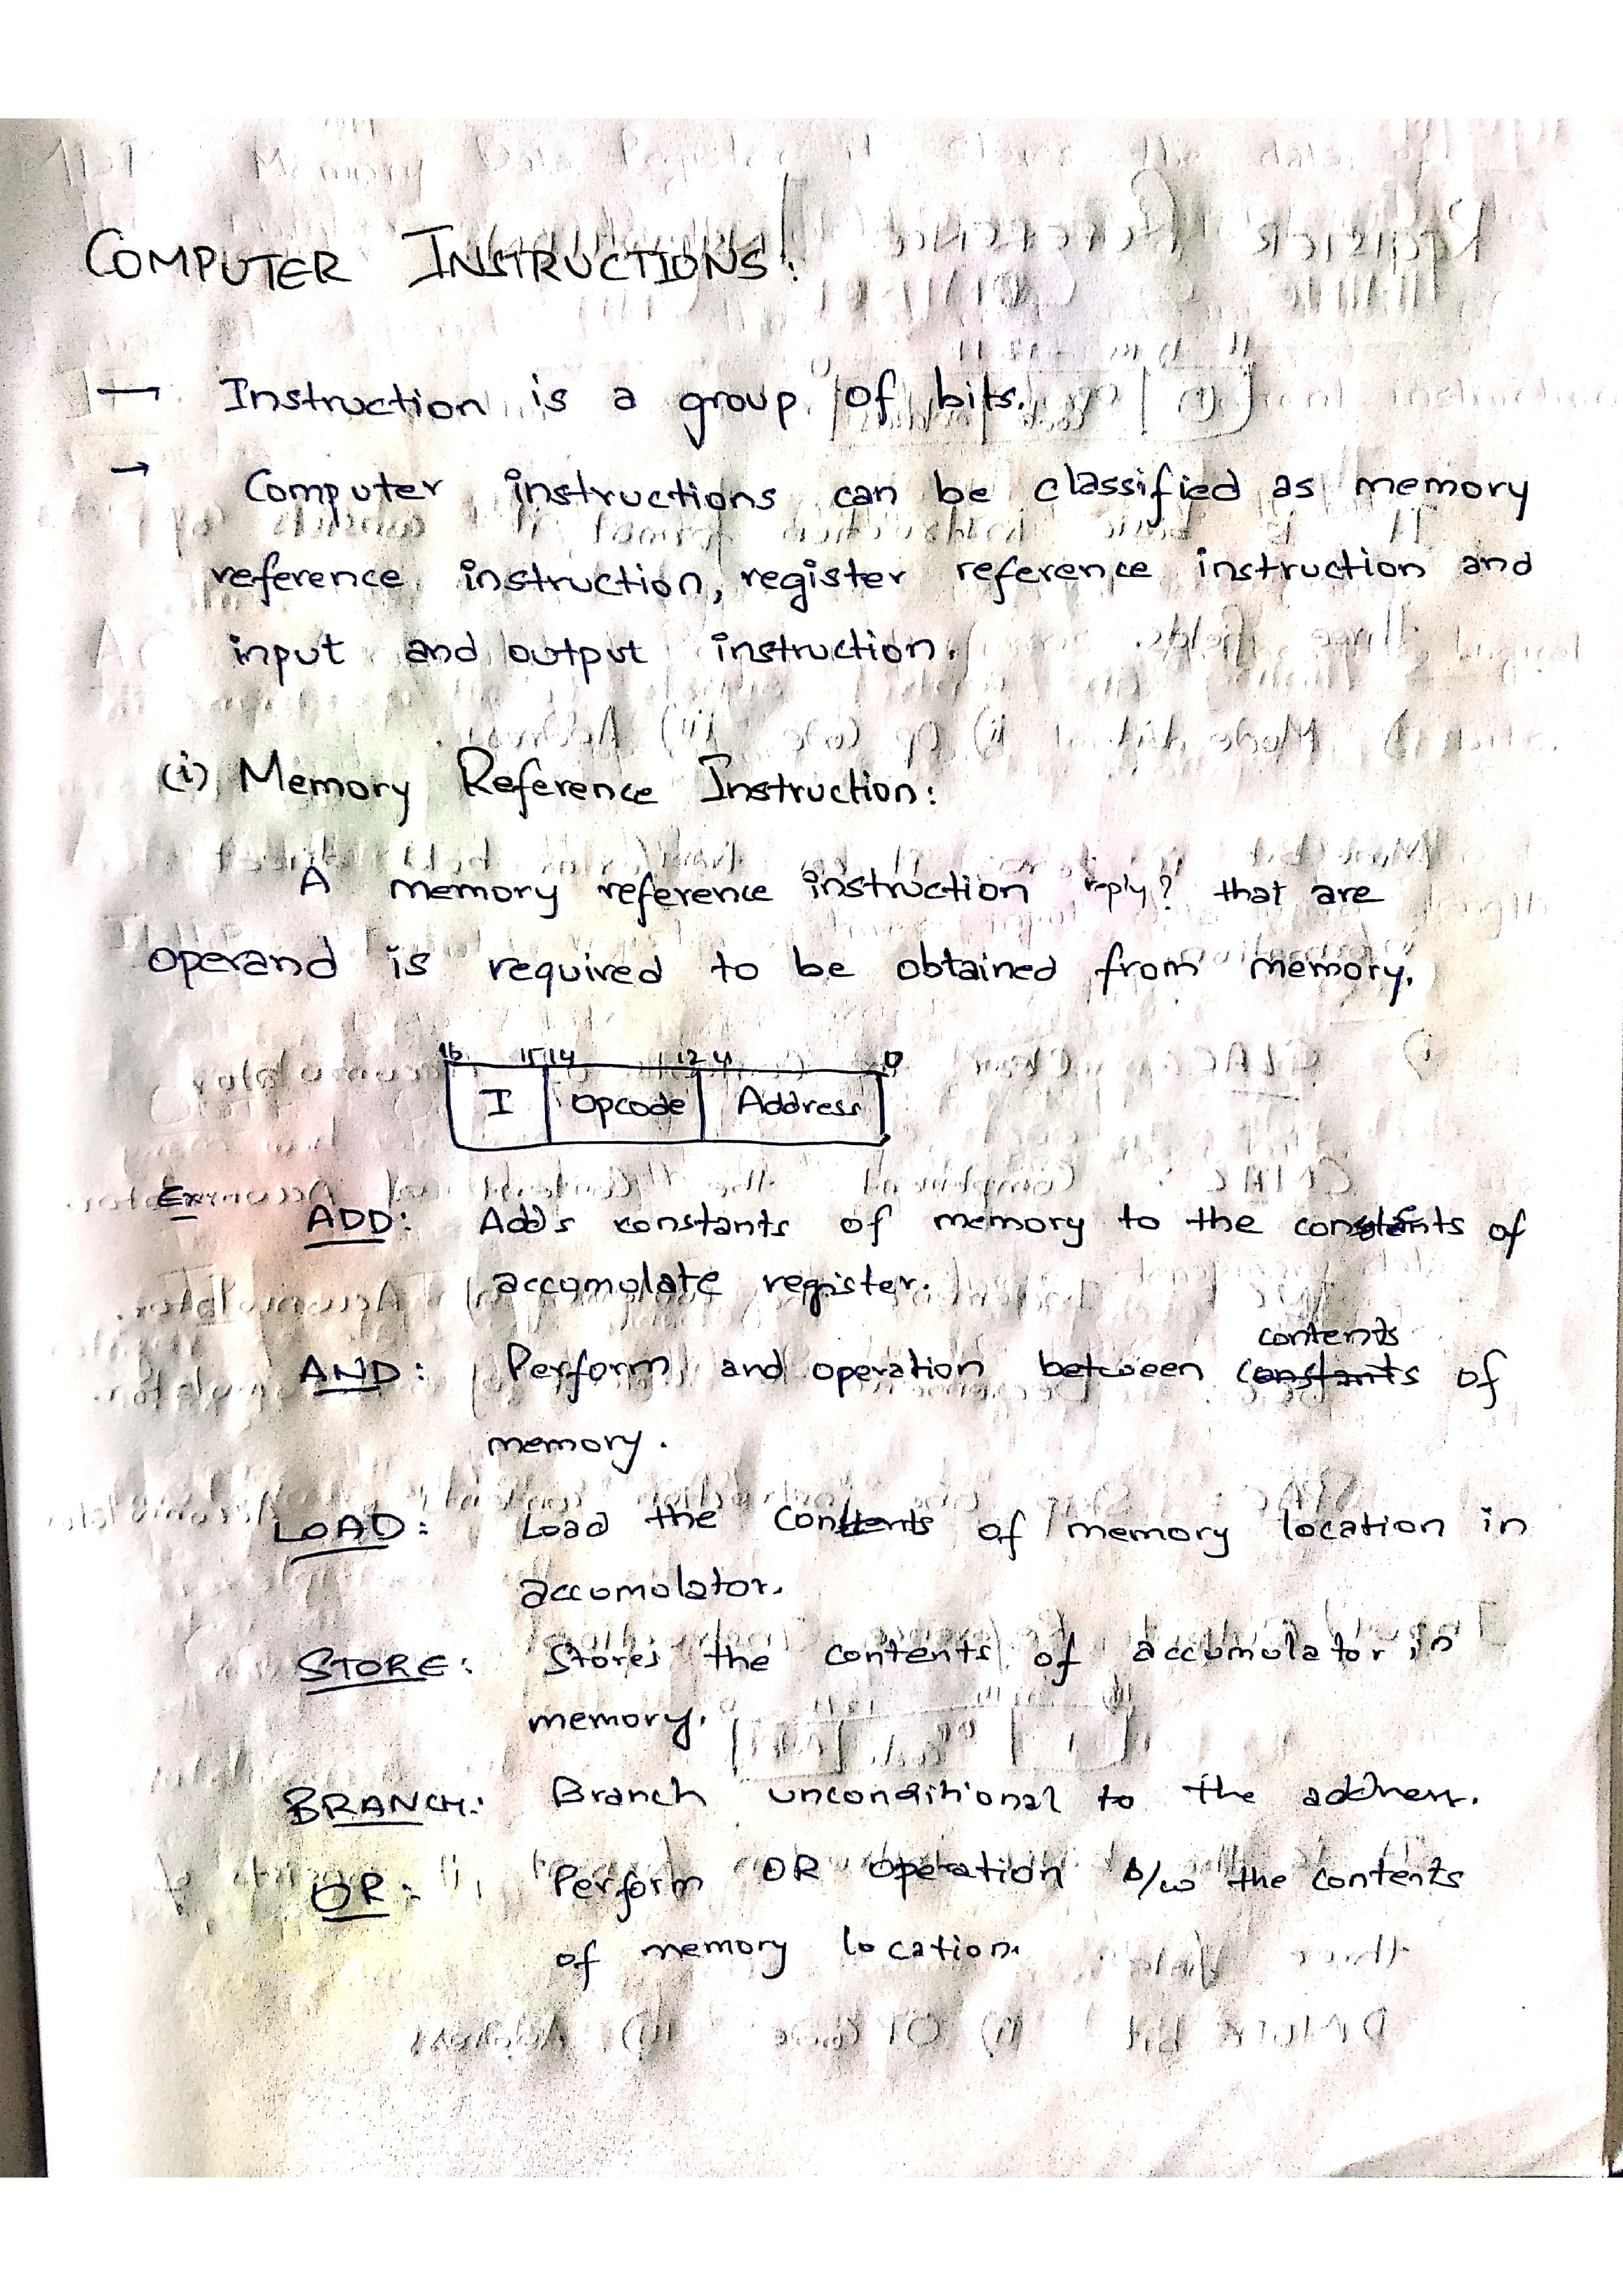 COMPUTER INSTRUCTIONS:
→ Instruction is a group of bits.
→ Computer instructions can be classified as memory
reference instruction, register reference instruction and
input and output instruction.
(i) Memory Reference Instruction:
A memory reference instruction reply? that are
operand is required to be obtained from memory.
16 15 14 12 11 0
I Opcode Address
Ex
ADD: Adds constants of memory to the contents of
accumulate register.
contents
AND: Perform and operation between constants of
memory.
LOAD: Load the Contents of memory location in
accumolator.
STORE: Stores the contents of accumulator in
memory.
BRANCH: Branch unconditional to the address.
OR: Perform OR operation b/w the contents
of memory location.